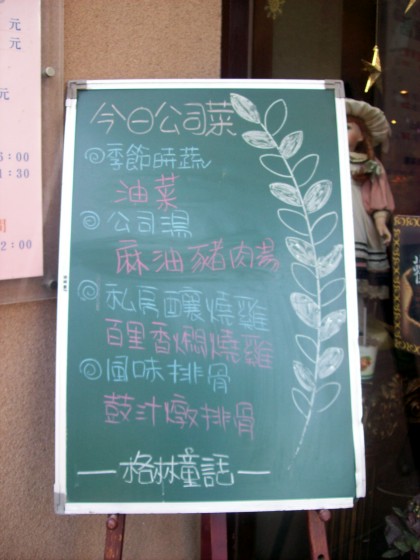 今日公司菜
季節時蔬
油菜
公司湯
麻油豬肉湯
私房釀燒雞
百里香燜燒雞
風味排骨
鼓汁燉排骨
格林童話
元
元
元
5:00
1:30
2:00